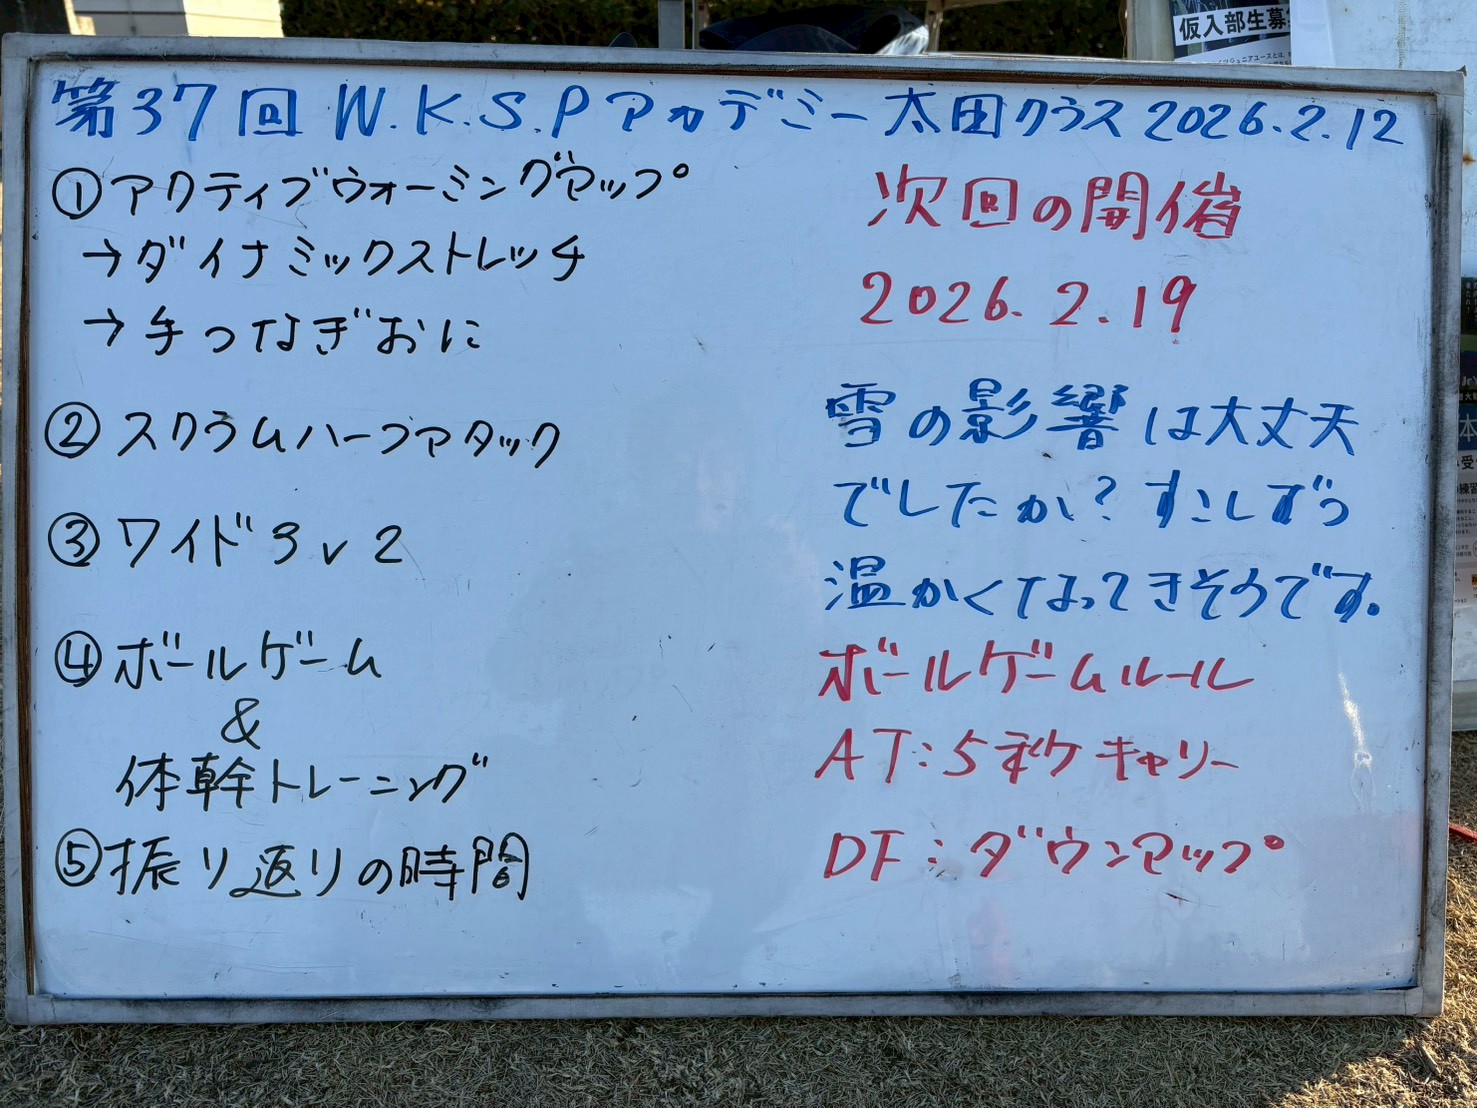 第37回 W.K.S.Pアカデミー太田クラス 2026.2.12
①アクティブウォーミングアップ
→ダイナミックストレッチ
→手つなぎおに
②スクラムハーフアタック
③ワイド3v2
④ボールゲーム
&
体幹トレーニング
⑤振り返りの時間
次回の開催
2026.2.19
雪の影響は大丈夫
でしたか?すこしずつ
温かくなってきそうです。
ボールゲームルール
AT:5秒キャリー
DF:ダウンアップ
仮入部生募